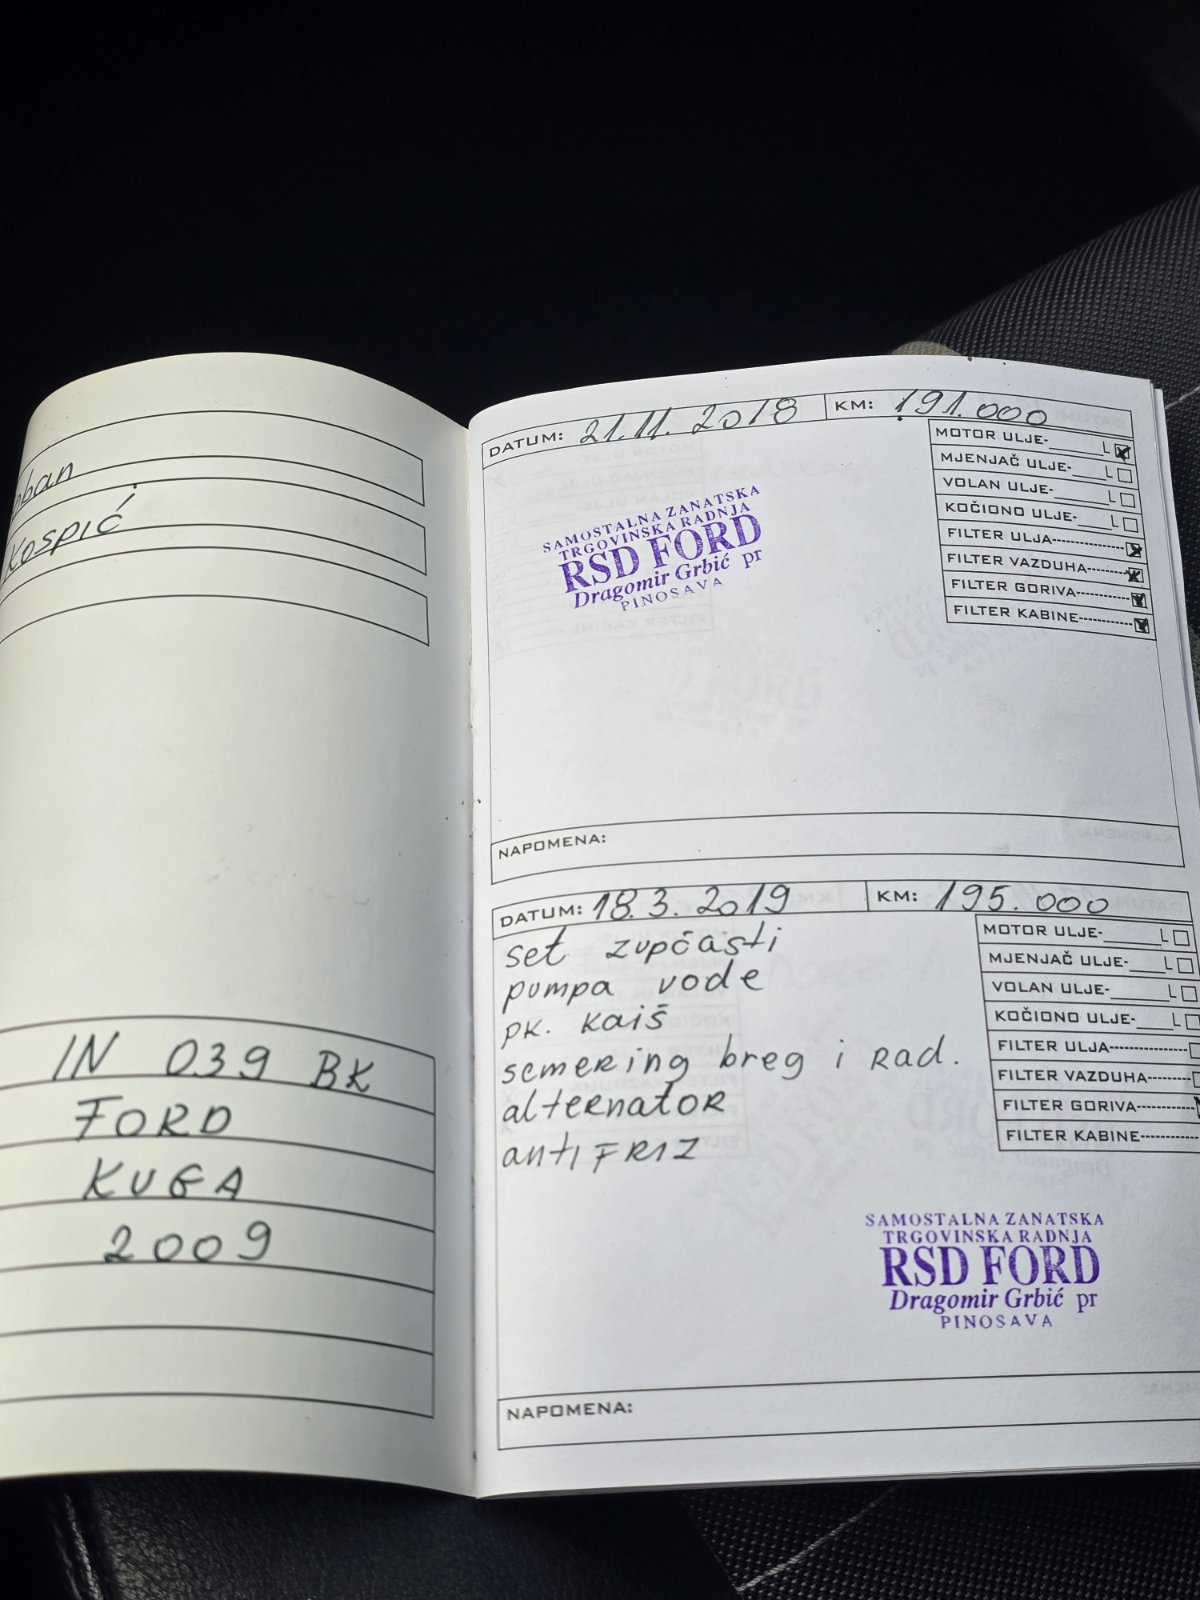 Kospić
IN 039 BK
FORD
KUGA
2009
DATUM: 21.11.2018 KM: 191.000
MOTOR ULJE-______L
MJENJAČ ULJE-____L
VOLAN ULJE-______L
KOČIONO ULJE-____L
FILTER ULJA----------
FILTER VAZDUHA-------
FILTER GORIVA--------
FILTER KABINE--------
SAMOSTALNA ZANATSKA
TRGOVINSKA RADNJA
RSD FORD
Dragomir Grbić pr
PINOSAVA
NAPOMENA:
DATUM: 18.3.2019 KM: 195.000
set zupčasti
pumpa vode
pk. kaiš
semering breg i rad.
alternator
antiFRIZ
MOTOR ULJE-______L
MJENJAČ ULJE-____L
VOLAN ULJE-______L
KOČIONO ULJE-____L
FILTER ULJA----------
FILTER VAZDUHA-------
FILTER GORIVA--------
FILTER KABINE--------
SAMOSTALNA ZANATSKA
TRGOVINSKA RADNJA
RSD FORD
Dragomir Grbić pr
PINOSAVA
NAPOMENA: